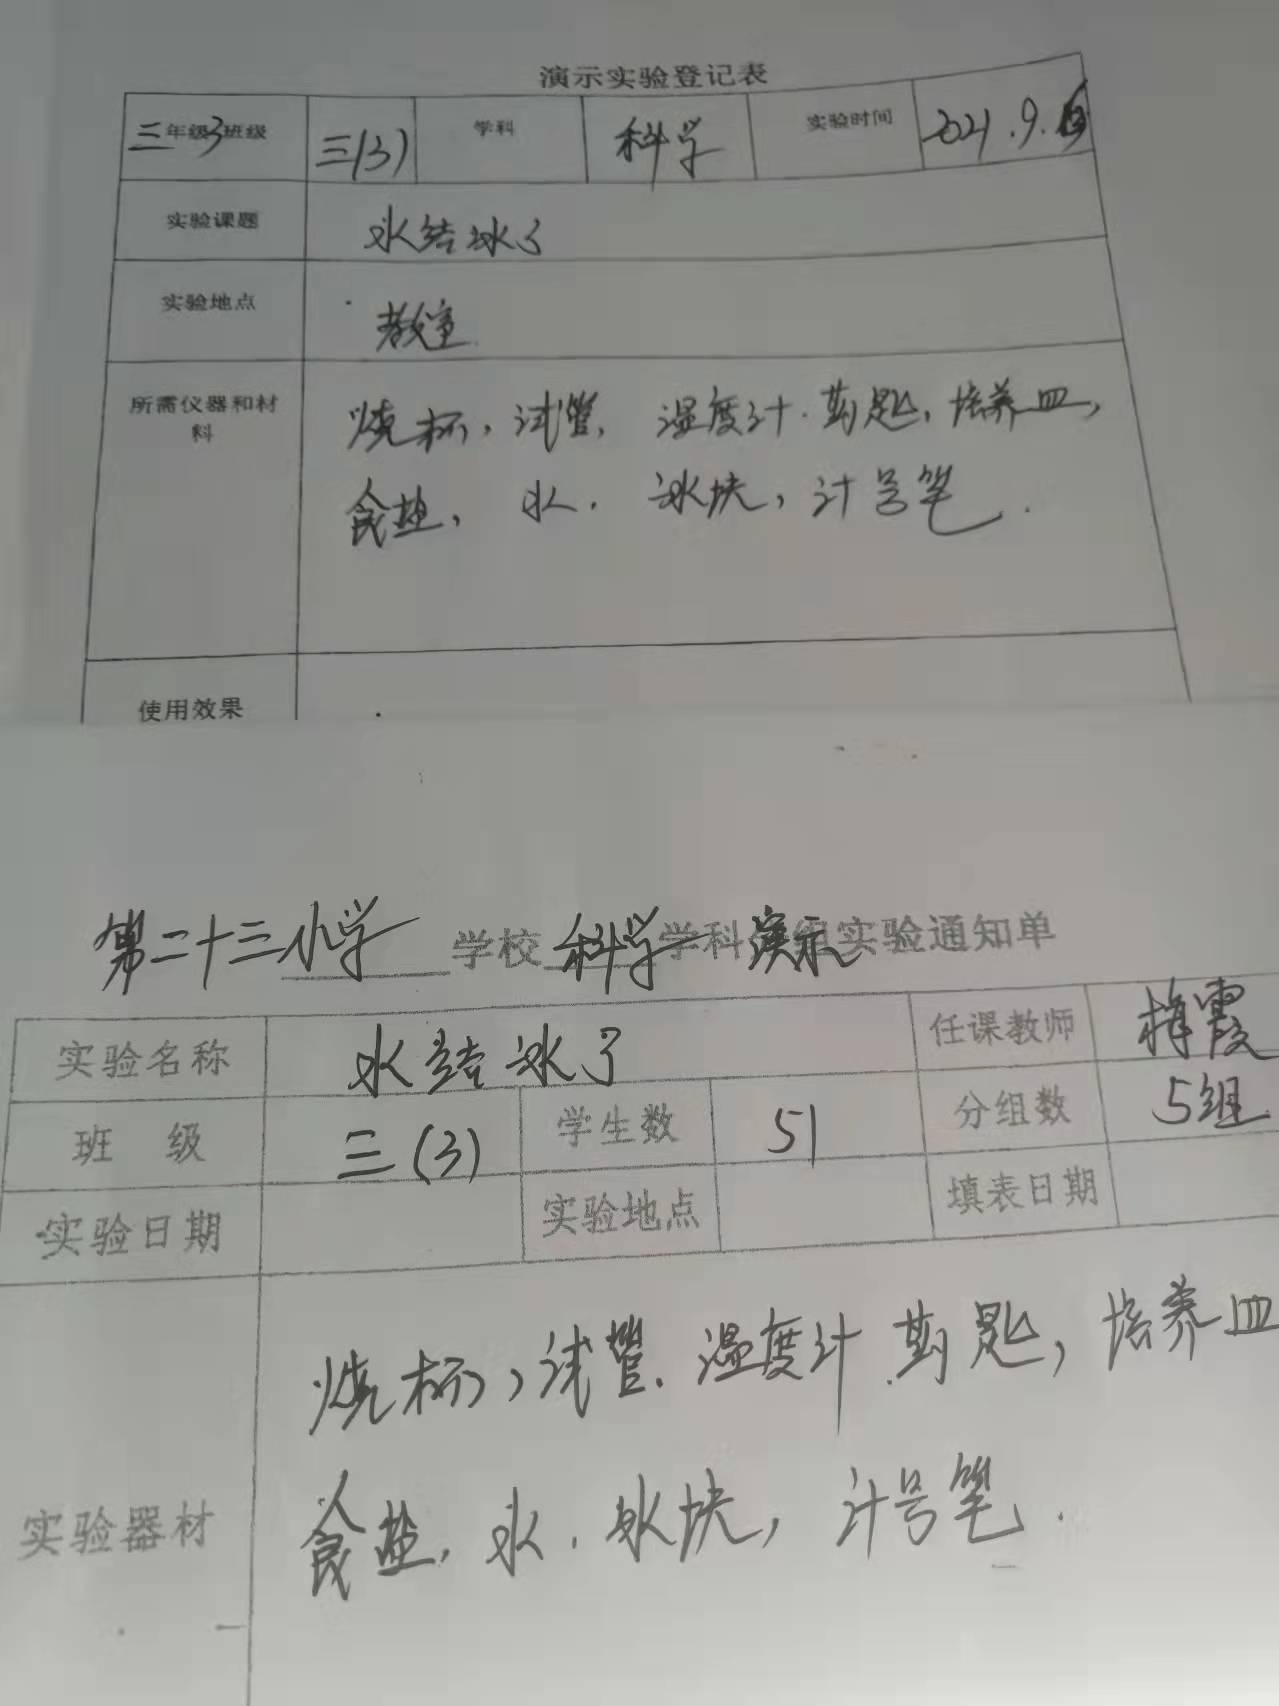 演示实验登记表
三年级3班级 三(3) 学科 科学 实验时间 2021.9.
实验课题 水结冰了
实验地点 教室
所需仪器和材料 烧杯，试管，温度计.药匙，培养皿，
食盐，水.冰块，计号笔.
使用效果
第二十三小学 学校 科学 学科 演示 实验通知单
实验名称 水结冰了 任课教师 梅霞
班 级 三(3) 学生数 51 分组数 5组
实验日期 实验地点 填表日期
实验器材 烧杯，试管.温度计.药匙，培养皿
食盐，水.冰块，计号笔.